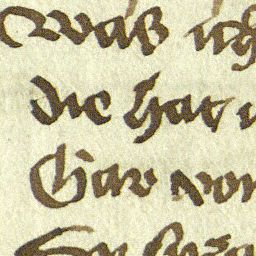 was ich
die hat
Gar von